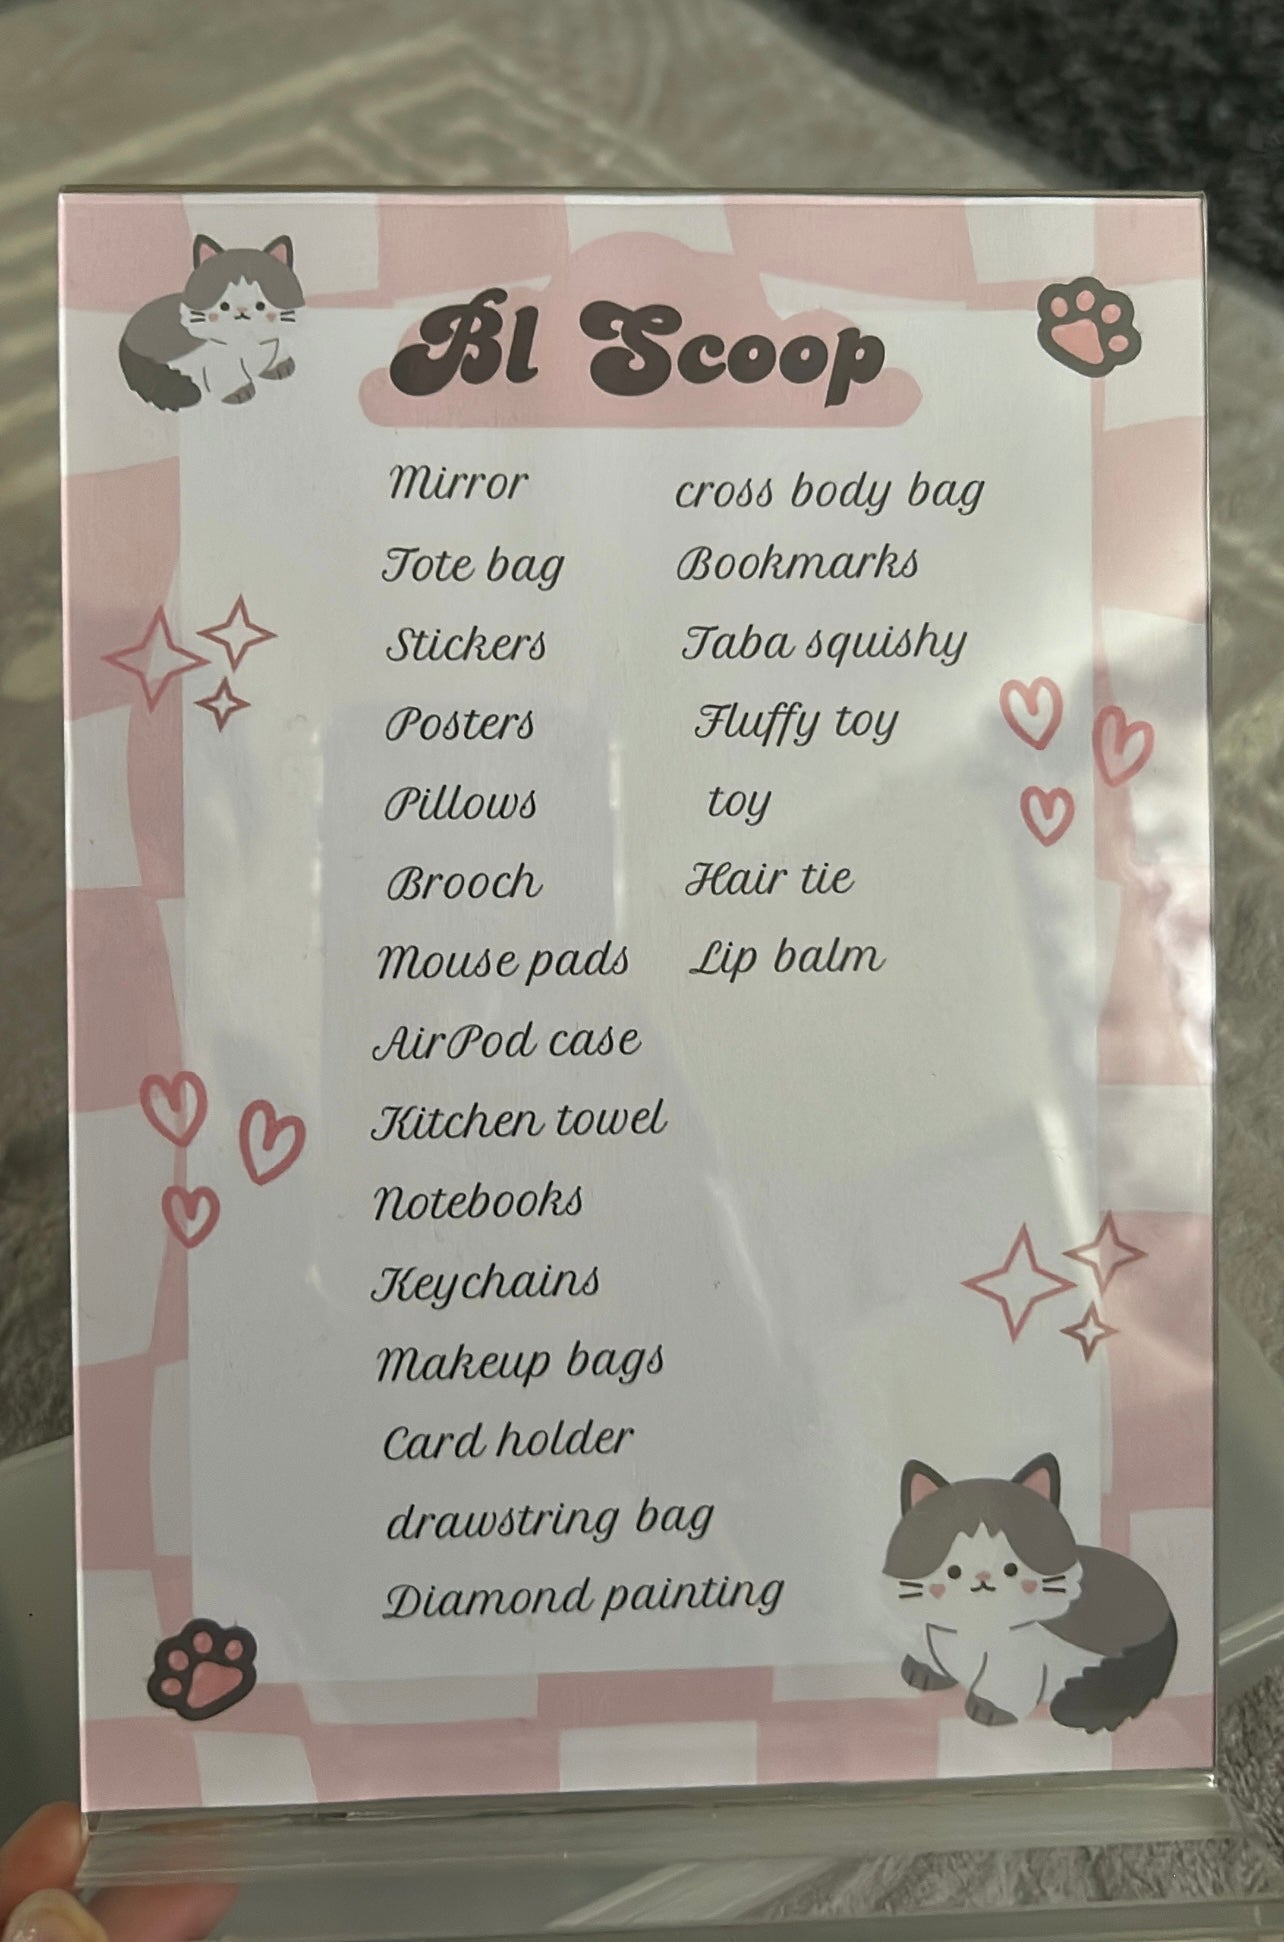 Bl Scoop
Mirror
Tote bag
Stickers
Posters
Pillows
Brooch
Mouse pads
AirPod case
Kitchen towel
Notebooks
Keychains
Makeup bags
Card holder
drawstring bag
Diamond painting
cross body bag
Bookmarks
Taba squishy
Fluffy toy
toy
Hair tie
Lip balm